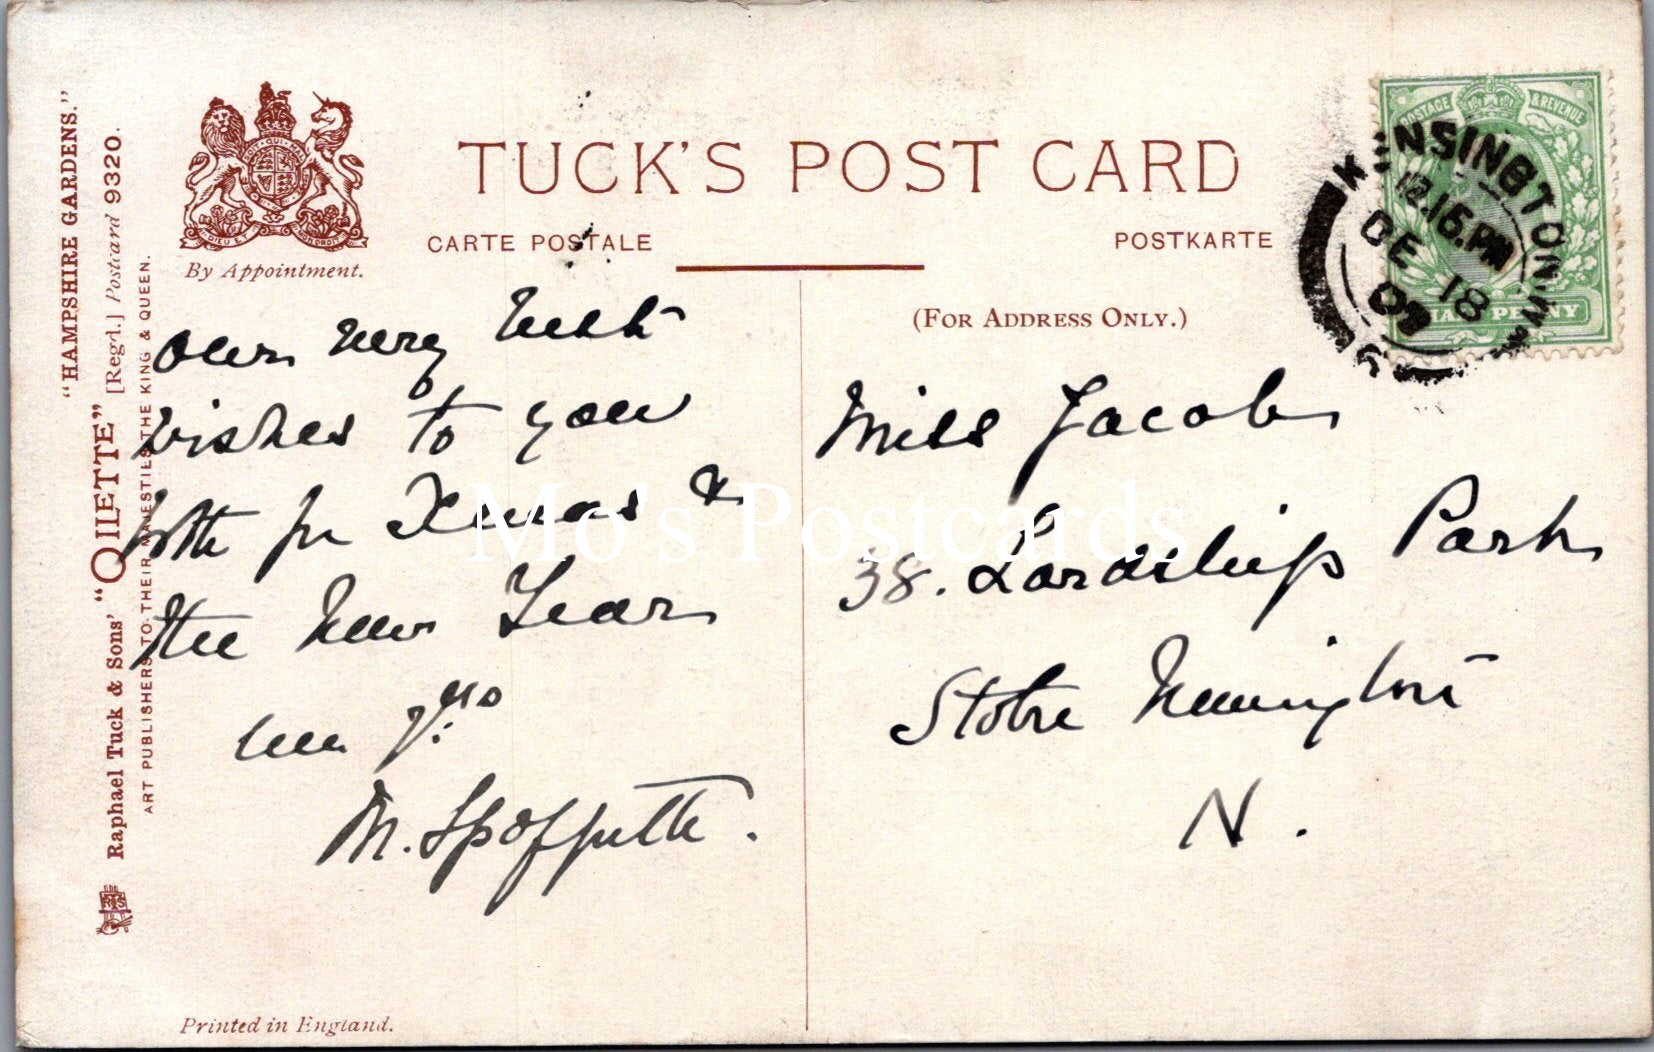 "HAMPSHIRE GARDENS."
Raphael Tuck & Sons' "OILETTE" [Regd.] Postcard 9320.
ART PUBLISHERS TO THEIR MAJESTIES THE KING & QUEEN.
DIEU ET MON DROIT
By Appointment.
TUCK'S POST CARD
CARTE POSTALE
POSTKARTE
(FOR ADDRESS ONLY.)
POSTAGE & REVENUE
HALFPENNY
KENSINGTON.W.
12.15.PM
DE 18
07
our very best
wishes to you
both for Xmas &
the New Year
M. Spoffutte.
Miss Jacobs
38. Lordship Park
Stoke Newington
N.
Mo's Postcards
Printed in England.